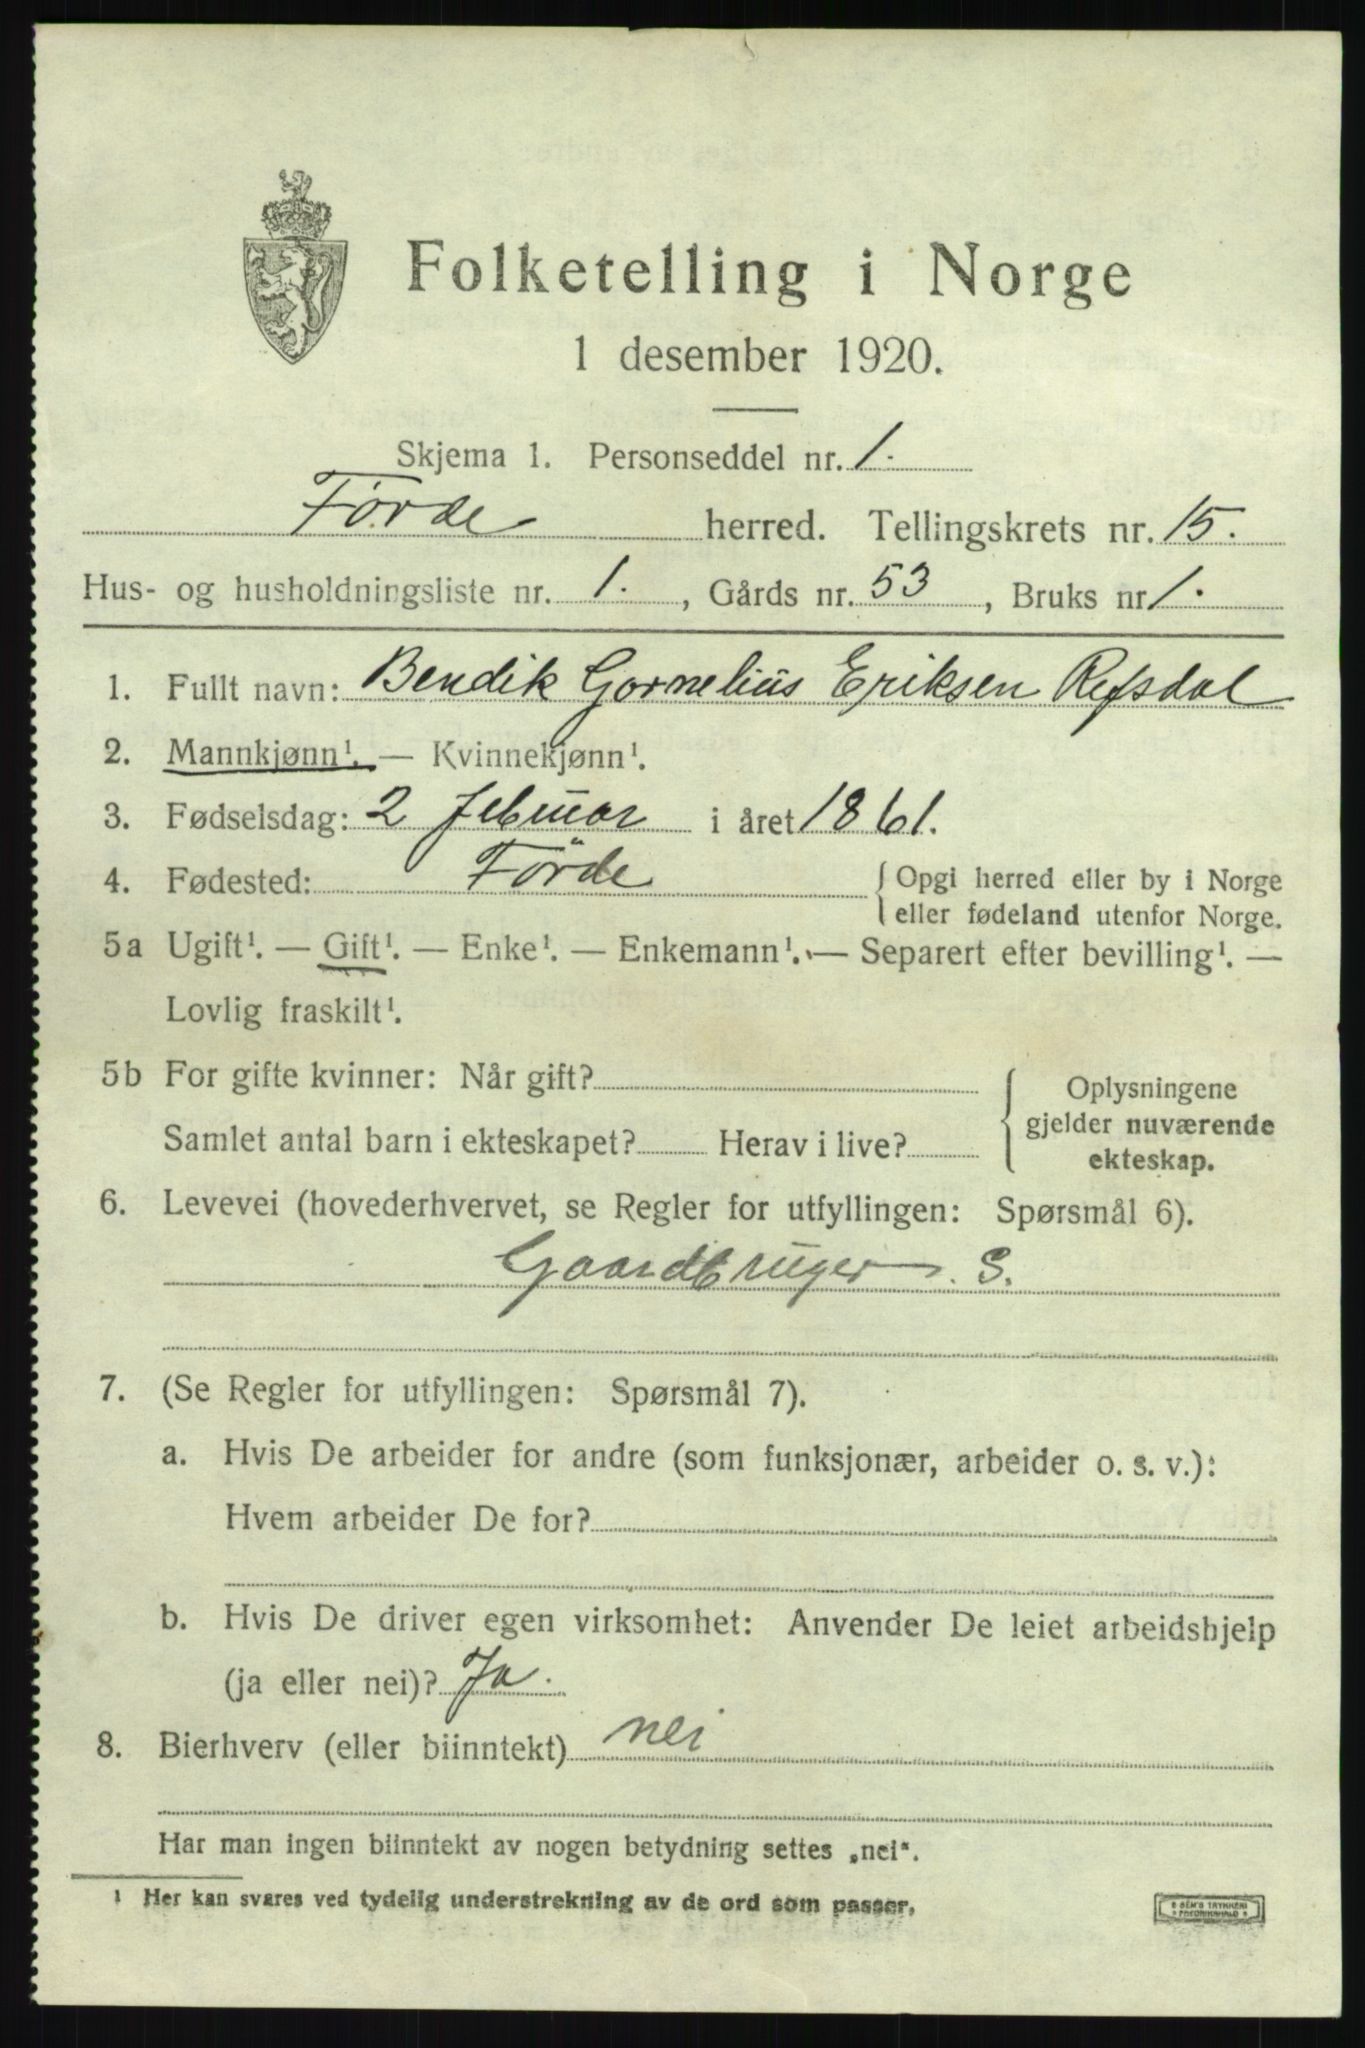 Folketelling i Norge
1 desember 1920.
Skjema 1. Personseddel nr. 1.
Førde herred. Tellingskrets nr. 15.
Hus- og husholdningsliste nr. 1. , Gårds nr. 53 , Bruks nr 1.
1. Fullt navn: Bendik Gornelius Eriksen Refsdal
2. Mannkjønn¹. — Kvinnekjønn¹.
3. Fødselsdag: 2 februar i året 1861.
4. Fødested: Förde { Opgi herred eller by i Norge
eller fødeland utenfor Norge.
5a Ugift¹. — Gift¹. — Enke¹. — Enkemann¹. — Separert efter bevilling¹. —
Lovlig fraskilt¹.
5b For gifte kvinner: Når gift? { Oplysningene
gjelder nuværende
Samlet antal barn i ekteskapet? Herav i live?
ekteskap.
6. Levevei (hovederhvervet, se Regler for utfyllingen: Spørsmål 6).
Gaardbruger. S.
7. (Se Regler for utfyllingen: Spørsmål 7).
a. Hvis De arbeider for andre (som funksjonær, arbeider o. s. v.):
Hvem arbeider De for?
b. Hvis De driver egen virksomhet: Anvender De leiet arbeidshjelp
(ja eller nei)? Ja.
8. Bierhverv (eller biinntekt) nei
Har man ingen biinntekt av nogen betydning settes „nei“.
¹ Her kan svares ved tydelig understrekning av de ord som passer.
SEM'S TRYKKERI
FREDRIKSHALD